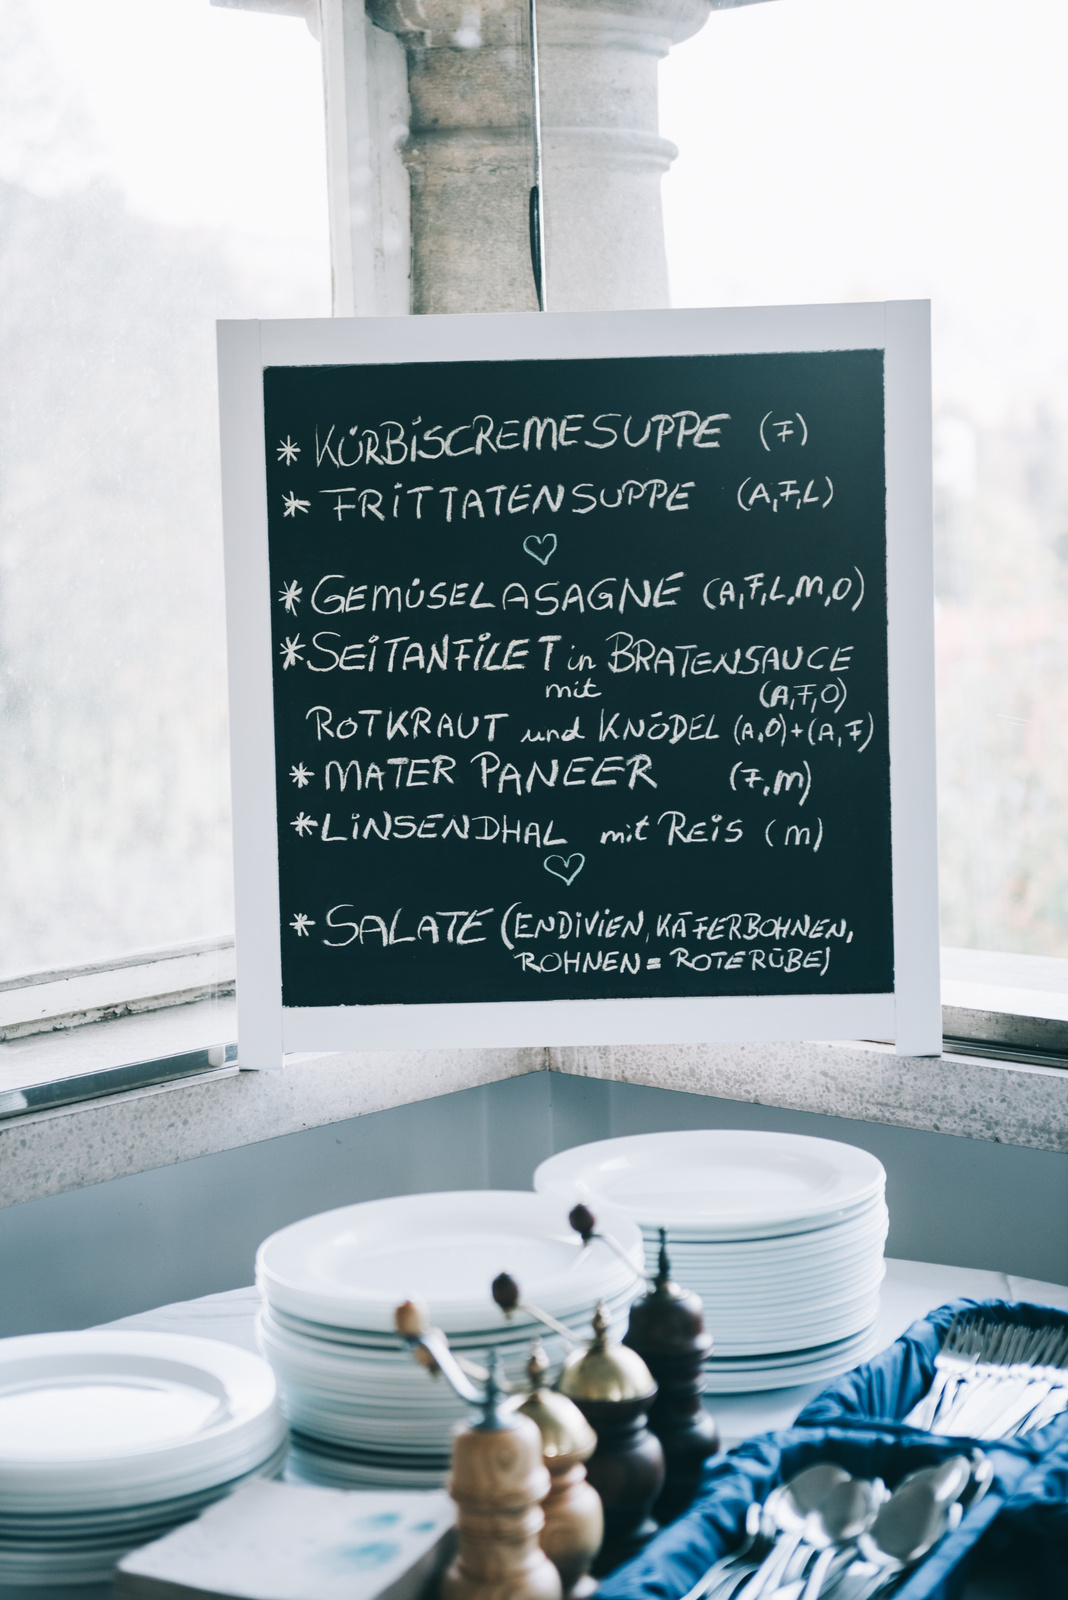 * KÜRBISCREMESUPPE (F)
* FRITTATENSUPPE (A,F,L)
* GEMÜSELASAGNE (A,F,L,M,O)
* SEITANFILET in BRATENSAUCE
mit (A,F,O)
ROTKRAUT und KNÖDEL (A,O)+(A,F)
* MATER PANEER (F,M)
* LINSENDHAL mit REIS (M)
* SALATE (ENDIVIEN, KÄFERBOHNEN,
ROHNEN = ROTE RÜBE)